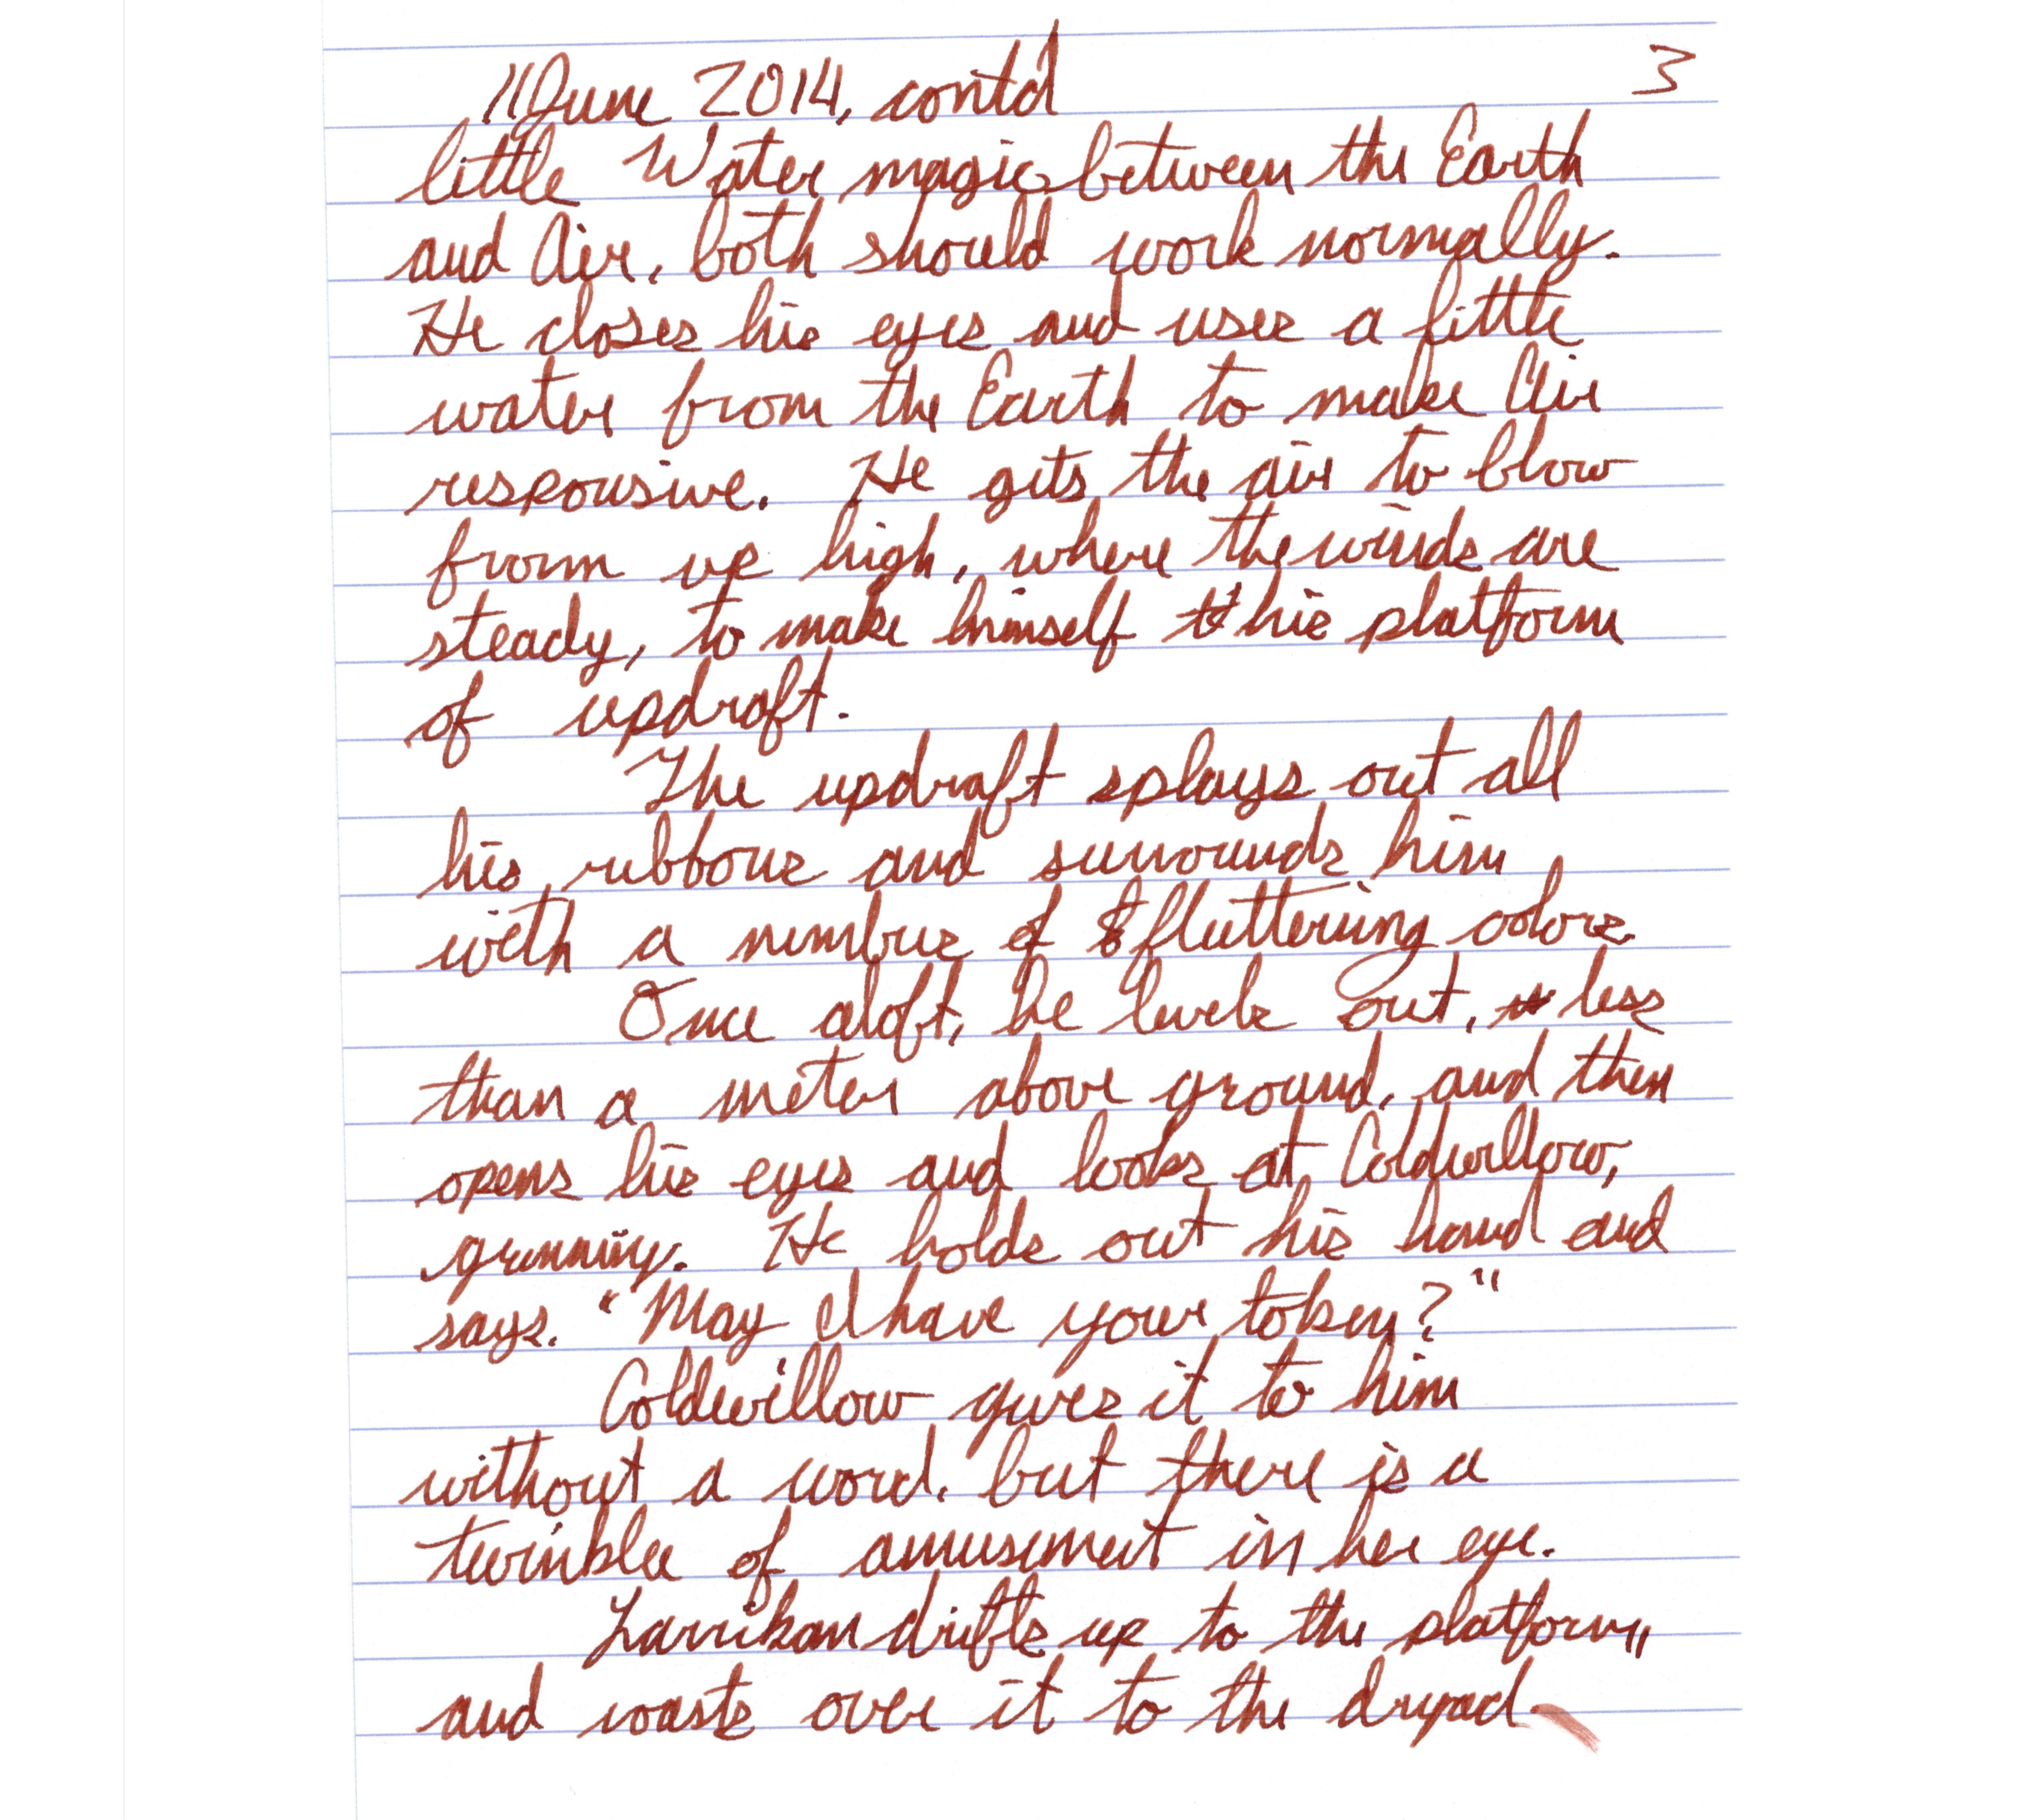 11 June 2014, cont'd 3
little Water magic between the Earth
and Air, both should work normally.
He closes his eyes and uses a little
water from the Earth to make Air
responsive. He gets the air to blow
from up high, where the winds are
steady, to make himself this platform
of updraft.
The updraft splays out all
his ribbons and surrounds him
with a nimbus of fluttering colors.
Once aloft, he levels out, less
than a meter above ground, and then
opens his eyes and looks at Coldwillow,
grinning. He holds out his hand and
says, "May I have your token?"
Coldwillow gives it to him
without a word, but there is a
twinkle of amusement in her eye.
Larrikan drifts up to the platform,
and wafts over it to the dryad.